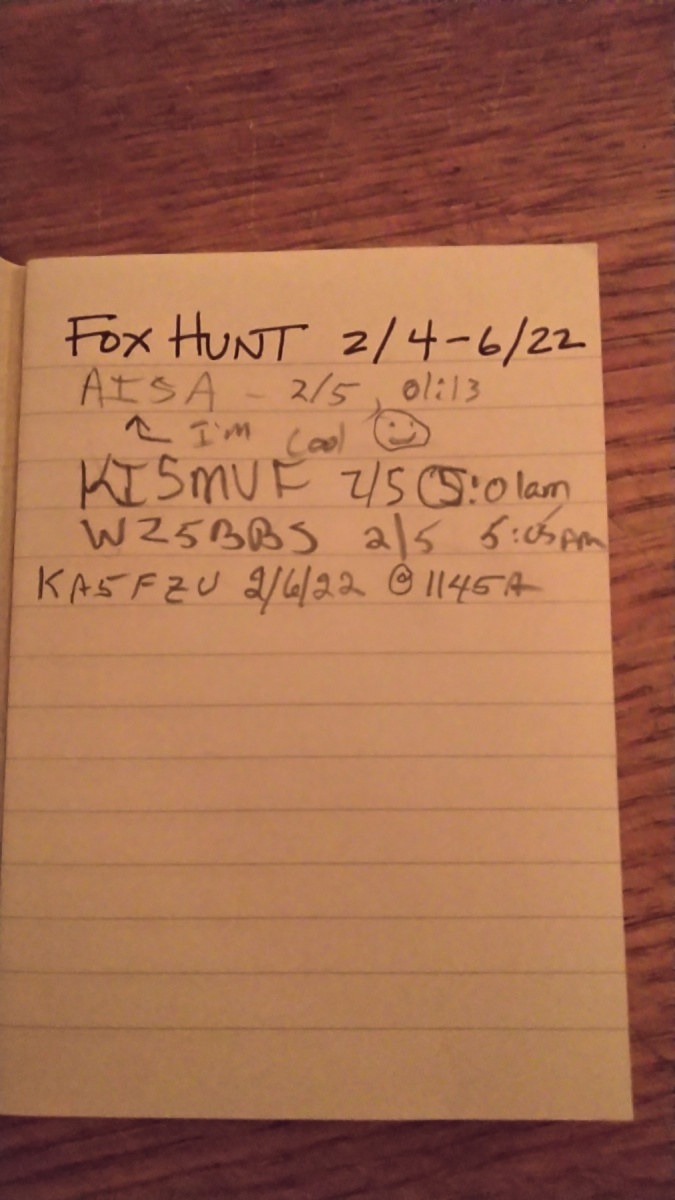 FOX HUNT 2/4-6/22
AI5A - 2/5, 01:13
↖ I'm cool ☺
KI5MVF 2/5 5:01am
WZ5BBS 2/5 5:05pm
KA5FZU 2/6/22 @ 1145A